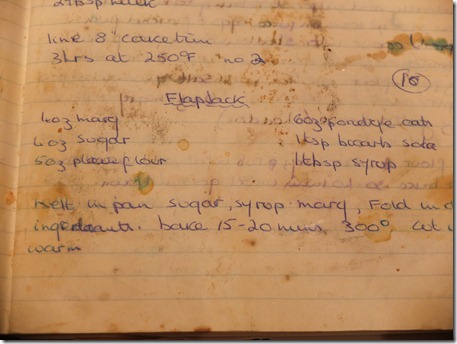 line 8" cake tin
3hrs at 250°F no 2
10
Flapjack
4oz marg 6oz porridge oats
4oz sugar 1tsp bicarb soda
5oz plain flour 1tbsp syrup
melt in pan sugar, syrup marg, Fold in d
ingredeants. bake 15-20 mins 300° cut
warm